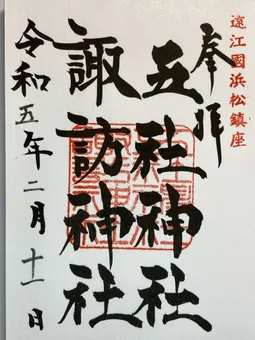 遠江國浜松鎮座
奉拝
五社神社
諏訪神社
令和五年二月十一日